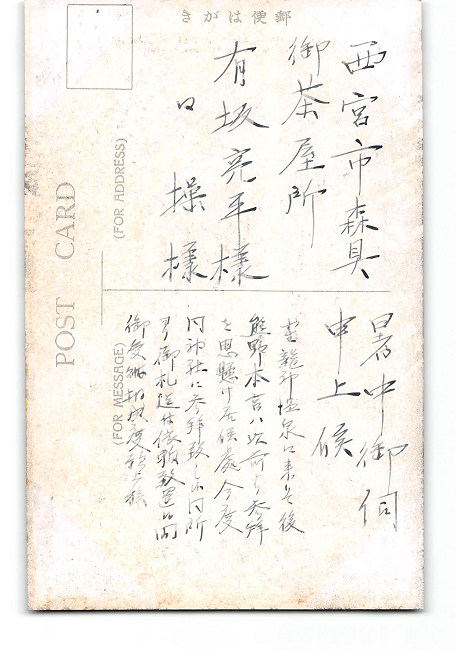 郵便はがき
西宮市森具
御茶屋所
有坂亮平様
〃 操様
暑中御伺
申上候
龍神温泉に来り後
熊野本宮ハ以前より参拝
を思懸け居候處今度
同神社に参拝致し
御札送付依頼致置候間
御受納
POST CARD
(FOR ADDRESS)
(FOR MESSAGE)